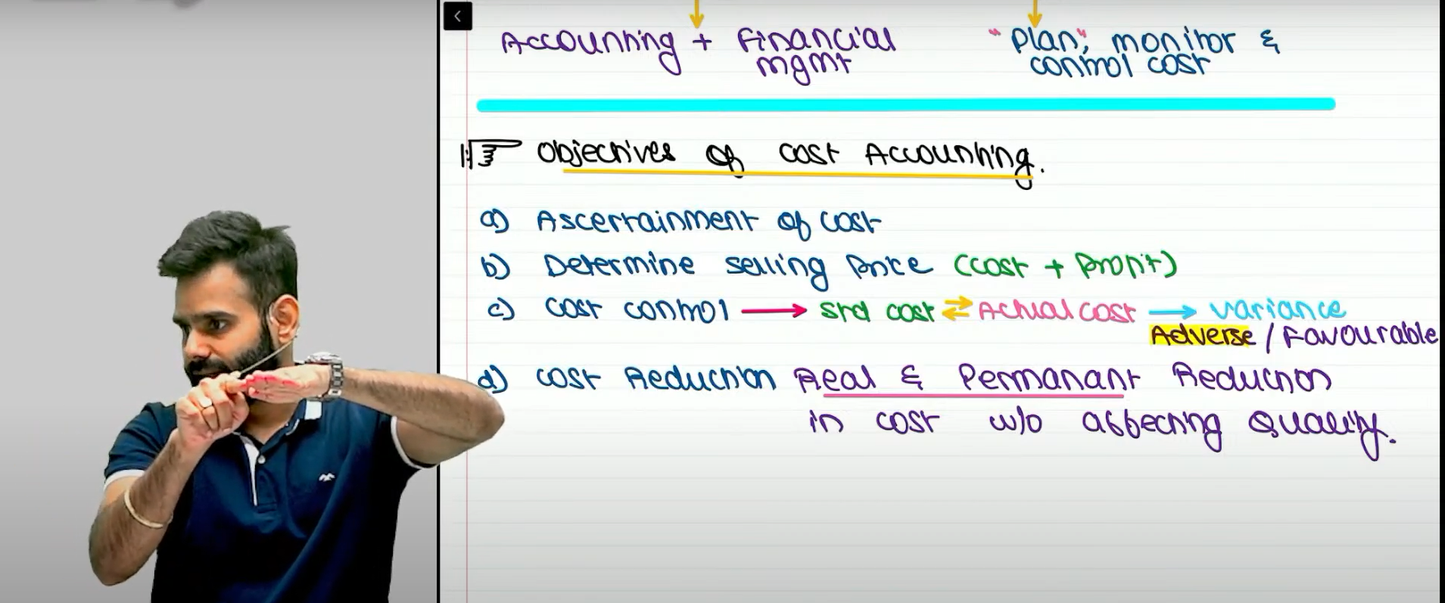 Accounting + Financial mgmt
"Plan", monitor & control cost
Objectives of Cost Accounting.
a) Ascertainment of cost
b) Determine selling Price (Cost + Profit)
c) Cost control → Std cost ⇄ Actual cost → Variance
Adverse / Favourable
d) Cost Reduction Real & Permanant Reduction
in cost w/o affecting Quality.